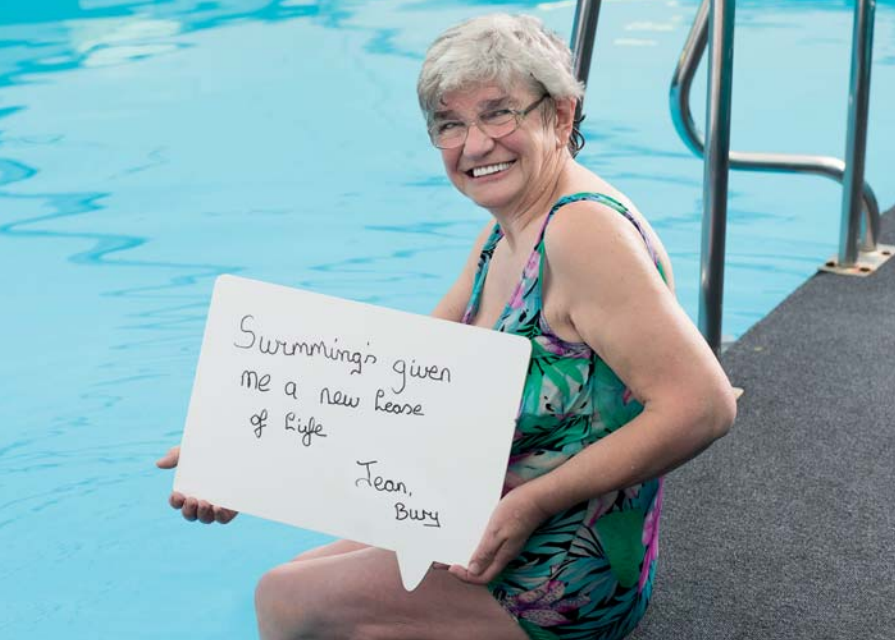 Swimming's given
me a new lease
of life
Jean,
Bury